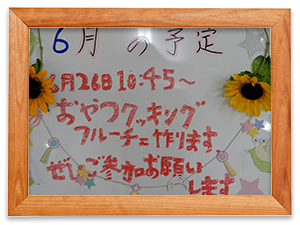 6月の予定
6月26日10:45～
おやつクッキング
フルーチェ作ります
ぜひご参加お願い
します